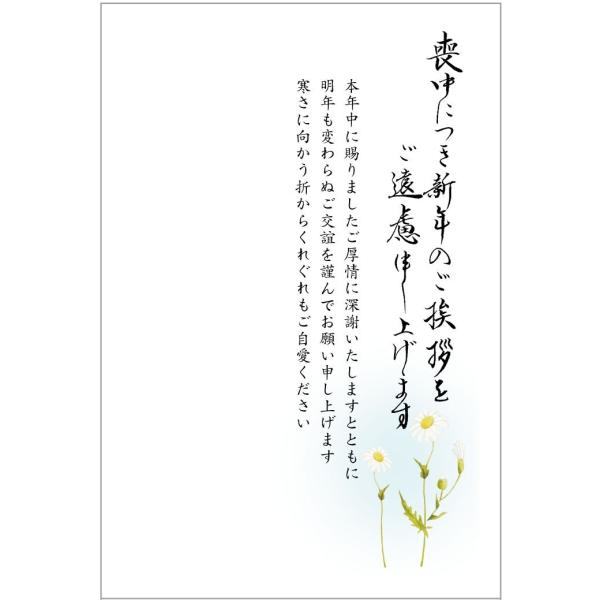 喪中につき新年のご挨拶を
ご遠慮申し上げます
本年中に賜りましたご厚情に深謝いたしますとともに
明年も変わらぬご交誼を謹んでお願い申し上げます
寒さに向かう折からくれぐれもご自愛ください